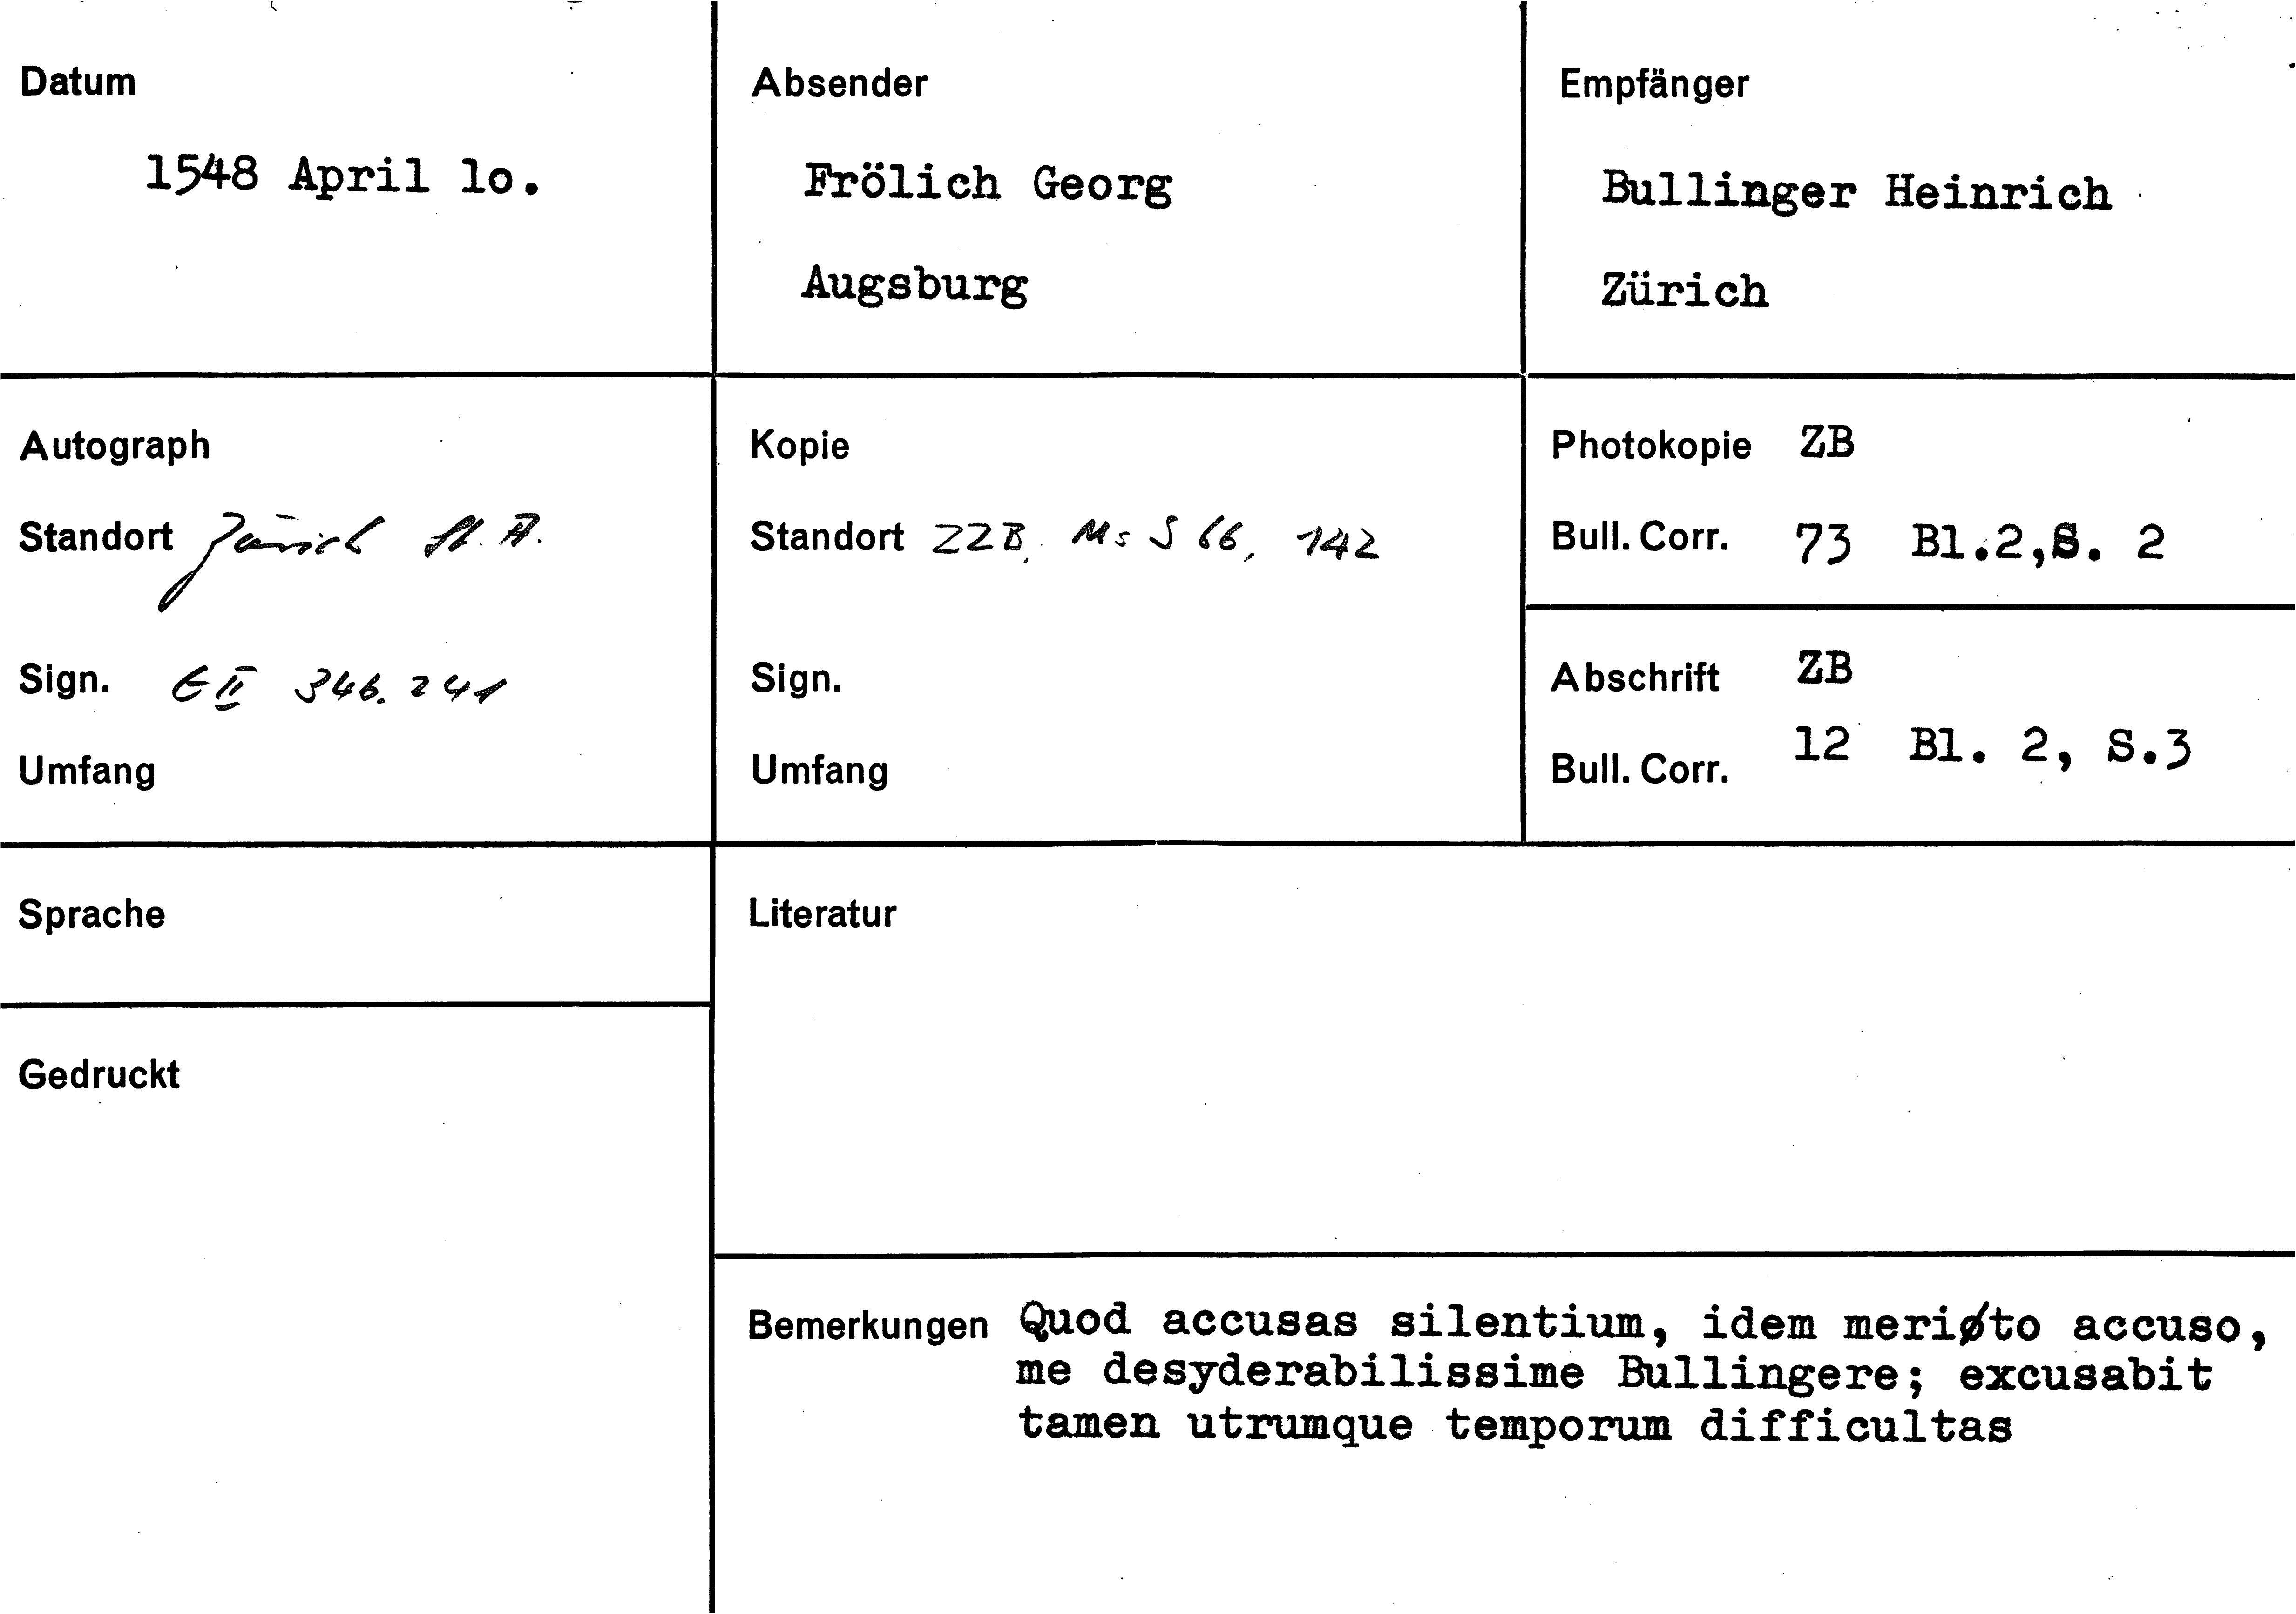 Datum
1548 April lo.
Absender
Frölich Georg
Augsburg
Empfänger
Bullinger Heinrich
Zürich
Autograph
Standort Zürich St. A.
Sign. E II 346. 241
Umfang
Kopie
Standort ZZB, Ms S 66, 142
Sign.
Umfang
Photokopie ZB
Bull. Corr. 73 Bl.2,S. 2
Abschrift ZB
Bull. Corr. 12 Bl. 2, S.3
Sprache
Gedruckt
Literatur
Bemerkungen Quod accusas silentium, idem merito accuso,
me desyderabilissime Bullingere; excusabit
tamen utrumque temporum difficultas